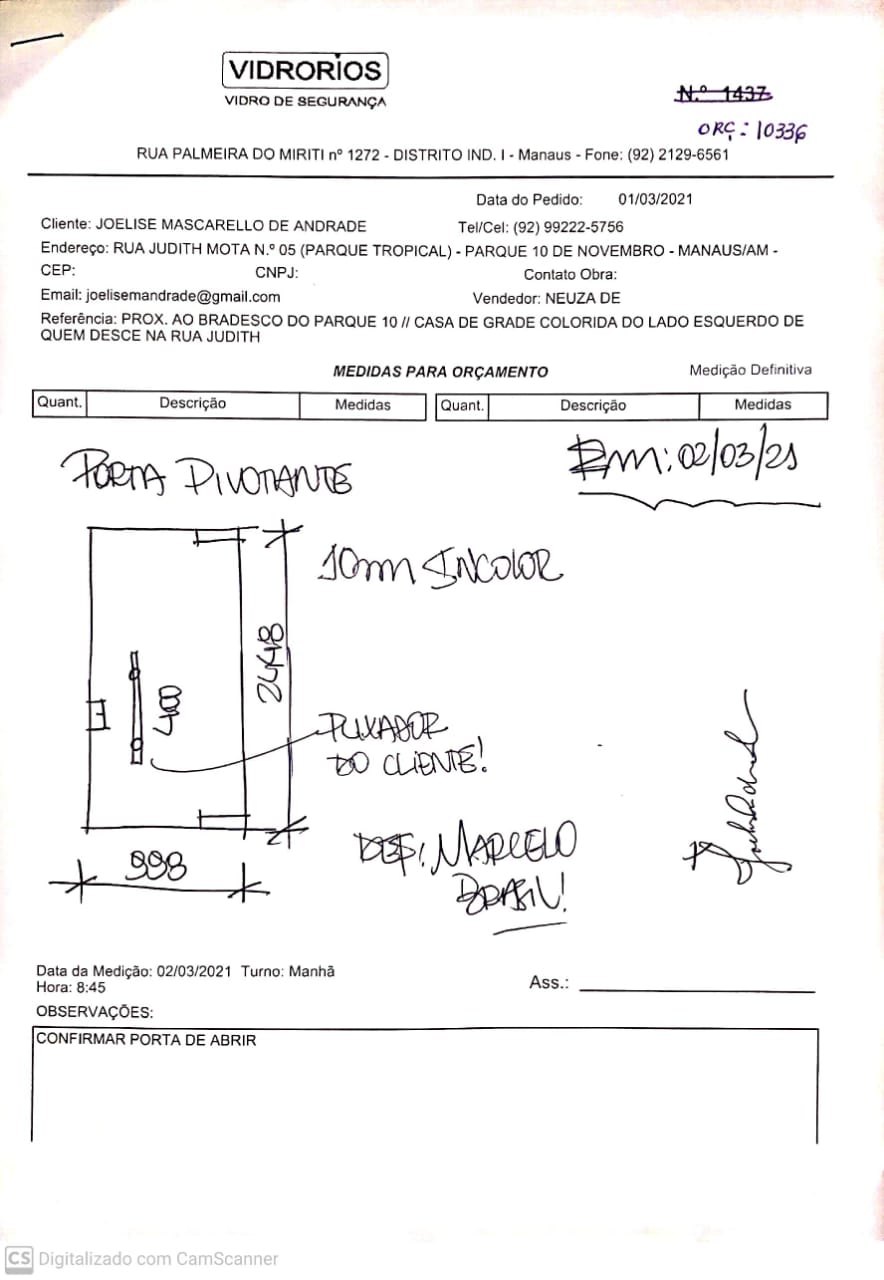 VIDRORIOS
VIDRO DE SEGURANÇA
N.º 1437
ORÇ: 10336
RUA PALMEIRA DO MIRITI nº 1272 - DISTRITO IND. I - Manaus - Fone: (92) 2129-6561
Data do Pedido: 01/03/2021
Cliente: JOELISE MASCARELLO DE ANDRADE Tel/Cel: (92) 99222-5756
Endereço: RUA JUDITH MOTA N.º 05 (PARQUE TROPICAL) - PARQUE 10 DE NOVEMBRO - MANAUS/AM -
CEP: CNPJ: Contato Obra:
Email: joelisemandrade@gmail.com Vendedor: NEUZA DE
Referência: PROX. AO BRADESCO DO PARQUE 10 // CASA DE GRADE COLORIDA DO LADO ESQUERDO DE
QUEM DESCE NA RUA JUDITH
MEDIDAS PARA ORÇAMENTO Medição Definitiva
Quant. Descrição Medidas Quant. Descrição Medidas
PORTA PIVOTANTE
Em: 02/03/21
10mm INCOLOR
2448
400
PUXADOR
DO CLIENTE!
998
DEF: MARCELO
BRASIL!
Data da Medição: 02/03/2021 Turno: Manhã
Hora: 8:45
Ass.:
OBSERVAÇÕES:
CONFIRMAR PORTA DE ABRIR
CS Digitalizado com CamScanner